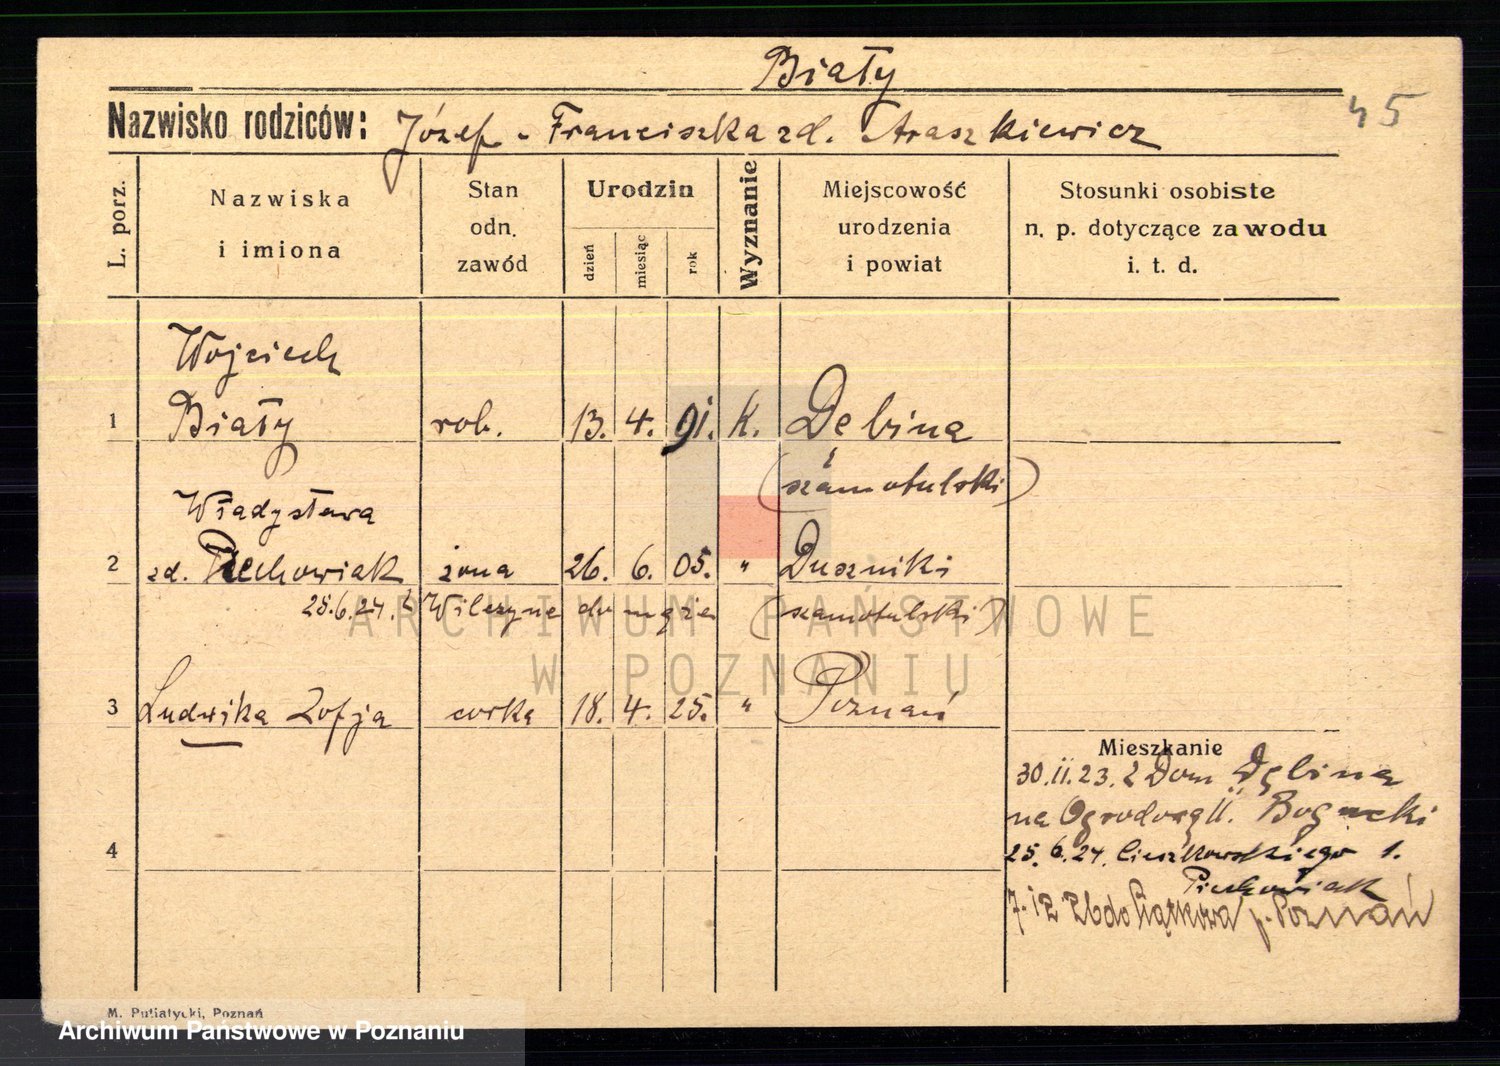 Biały
45
Nazwisko rodziców: Józef - Franciszka zd. Araszkiewicz
L. porz.
Nazwiska
i imiona
Stan
odn.
zawód
Urodzin
dzień
miesiąc
rok
Wyznanie
Miejscowość
urodzenia
i powiat
Stosunki osobiste
n. p. dotyczące zawodu
i. t. d.
Wojciech
1 Biały rob. 13. 4. 91. k. Debina
(szamotulski)
Władysława
2 zd. Piechowiak żona 26. 6. 05. " Duszniki
25.6.24. z Wilczyna do męża (szamotulski)
3 Ludwika Zofja corka 18. 4. 25. " Poznań
Mieszkanie
30.II.23. z Dom. Dębina
na Ogrodową 11. Bogacki
4
25.6.24. Cieszkowskiego 1.
Piechowiak
7.12 26 do Piątkowa p. Poznań
ARCHIWUM PAŃSTWOWE
W POZNANIU
M. Putiatycki, Poznań
Archiwum Państwowe w Poznaniu